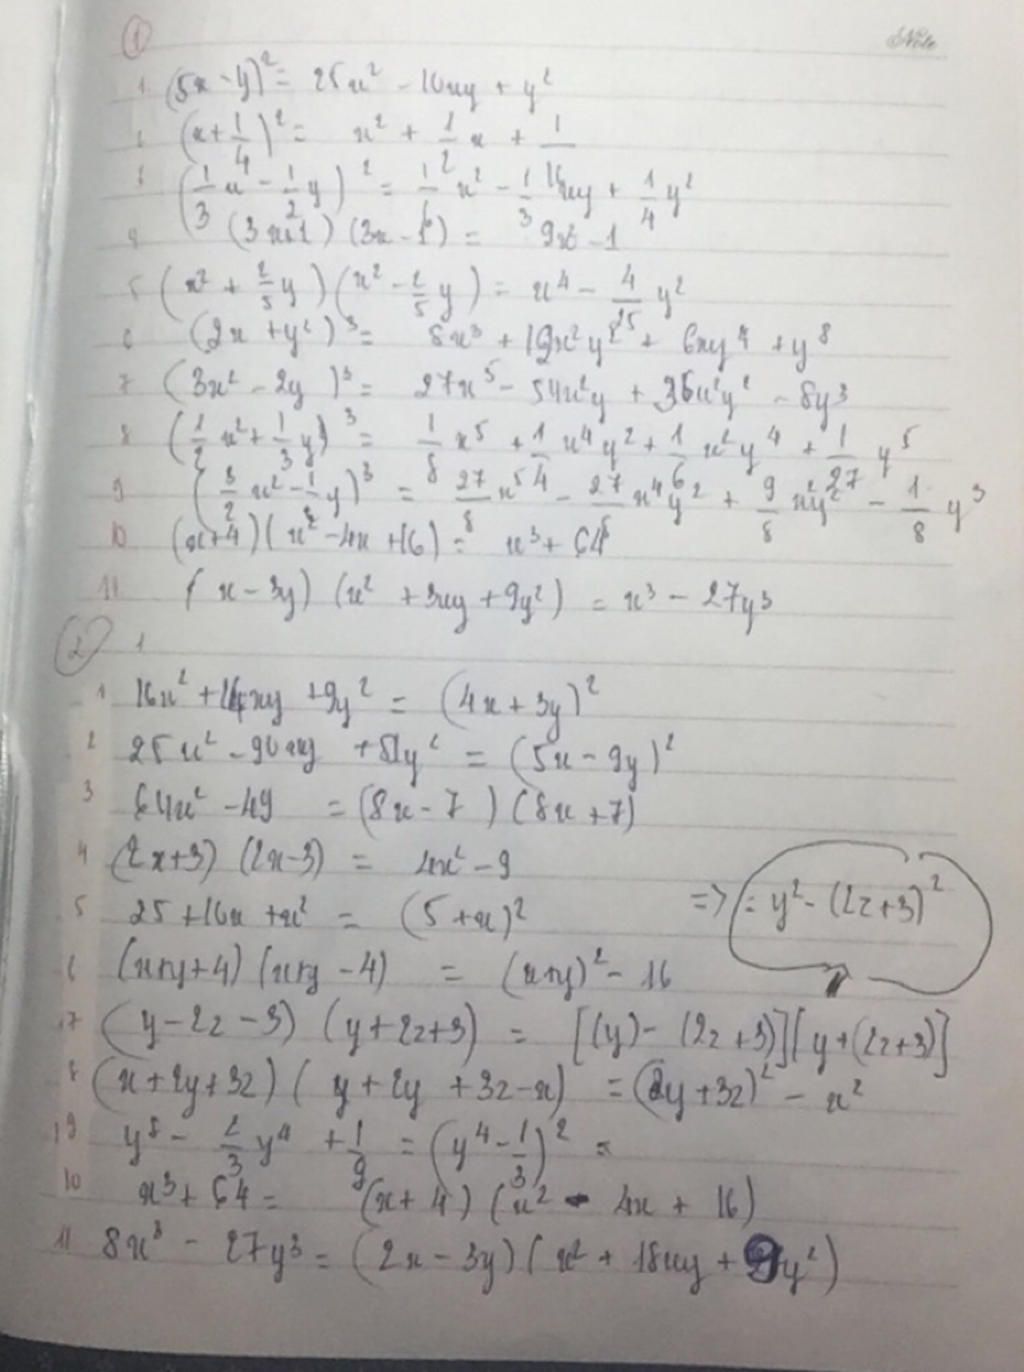 ①
Note
1 (5x - y)² = 25x² - 10xy + y²
2 (x + 1/4)² = x² + 1/2 x + 1/16
3 (1/3 x - 1/2 y)² = 1/6 x² - 1/3 xy + 1/4 y²
4 (3x+1) (3x - 1) = 9x² - 1
5 (x² + 2/5 y) (x² - 2/5 y) = x⁴ - 4/25 y²
6 (2x + y²)³ = 8x³ + 12x²y² + 6xy⁴ + y⁸
7 (3x² - 2y)³ = 27x⁵ - 54x²y + 36x²y² - 8y³
8 (1/2 x² + 1/3 y)³ = 1/8 x⁵ + 1/4 x⁴y² + 1/6 x²y⁴ + 1/27 y⁵
9 (3/2 x² - 1/2 y)³ = 27/8 x⁵ - 27/8 x⁴y² + 9/8 x²y² - 1/8 y³
10 (x+4) (x² - 4x + 16) = x³ + 64
11 (x - 3y) (x² + 3xy + 9y²) = x³ - 27y³
② 1
1 16x² + 24xy + 9y² = (4x + 3y)²
2 25x² - 90xy + 81y² = (5x - 9y)²
3 64x² - 49 = (8x - 7) (8x + 7)
4 (2x+3) (2x-3) = 4x² - 9
5 25 + 10x + x² = (5 + x)²
=> = y² - (2z+3)²
6 (x+y+4) (x+y - 4) = (x+y)² - 16
7 (y - 2z - 3) (y + 2z + 3) = [(y) - (2z + 3)] [y + (2z+3)]
8 (x + 2y + 3z) ( y + 2y + 3z - x) = (2y + 3z)² - x²
9 y⁸ - 2/3 y⁴ + 1/9 = (y⁴ - 1/3)² =
10 x³ + 64 = (x + 4) (x² - 4x + 16)
11 8x³ - 27y³ = (2x - 3y) (x² + 18xy + 9y²)